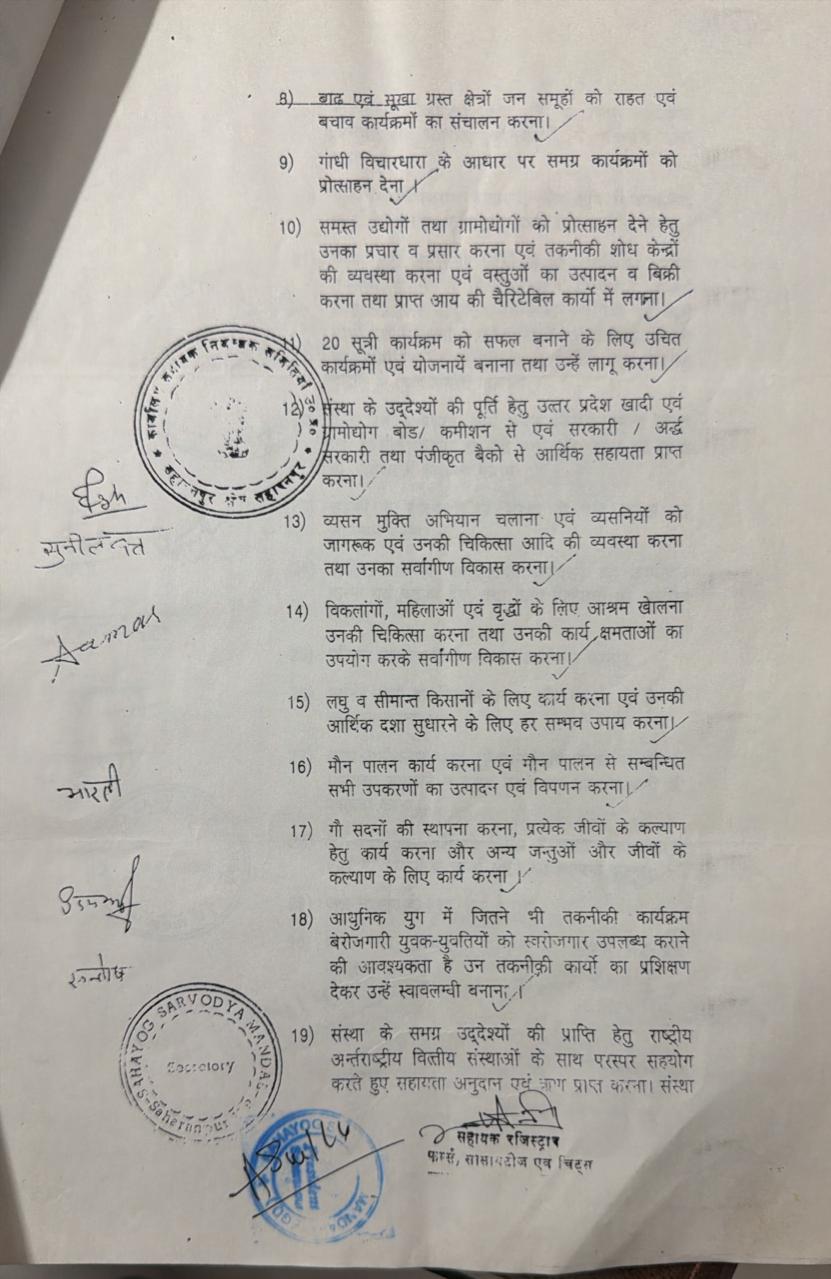 8) बाढ एवं सूखा ग्रस्त क्षेत्रों जन समूहों को राहत एवं
बचाव कार्यक्रमों का संचालन करना।
9) गांधी विचारधारा के आधार पर समग्र कार्यक्रमों को
प्रोत्साहन देना ।
10) समस्त उद्योगों तथा ग्रामोद्योगों को प्रोत्साहन देने हेतु
उनका प्रचार व प्रसार करना एवं तकनीकी शोध केन्द्रों
की व्यवस्था करना एवं वस्तुओं का उत्पादन व बिक्री
करना तथा प्राप्त आय की चैरिटेबिल कार्यो में लगाना।
11) 20 सूत्री कार्यक्रम को सफल बनाने के लिए उचित
कार्यक्रमों एवं योजनायें बनाना तथा उन्हें लागू करना।
12) संस्था के उद्देश्यों की पूर्ति हेतु उत्तर प्रदेश खादी एवं
ग्रामोद्योग बोड/ कमीशन से एवं सरकारी / अर्द्ध
सरकारी तथा पंजीकृत बैको से आर्थिक सहायता प्राप्त
करना।
13) व्यसन मुक्ति अभियान चलाना एवं व्यसनियों को
जागरूक एवं उनकी चिकित्सा आदि की व्यवस्था करना
तथा उनका सर्वागीण विकास करना।
14) विकलांगों, महिलाओं एवं वृद्धों के लिए आश्रम खेालना
उनकी चिकित्सा करना तथा उनकी कार्य क्षमताओं का
उपयोग करके सर्वांगीण विकास करना।
15) लघु व सीमान्त किसानों के लिए कार्य करना एवं उनकी
आर्थिक दशा सुधारने के लिए हर सम्भव उपाय करना।
16) मौन पालन कार्य करना एवं मौन पालन से सम्बन्धित
सभी उपकरणों का उत्पादन एवं विपणन करना।
17) गौ सदनों की स्थापना करना, प्रत्येक जीवों के कल्याण
हेतु कार्य करना और अन्य जन्तुओं और जीवों के
कल्याण के लिए कार्य करना ।
18) आधुनिक युग में जितने भी तकनीकी कार्यक्रम
बेरोजगारी युवक-युवतियों को स्वरोजगार उपलब्ध कराने
की आवश्यकता है उन तकनीकी कार्यो का प्रशिक्षण
देकर उन्हें स्वावलम्वी बनाना ।
19) संस्था के समग्र उद्देश्यों की प्राप्ति हेतु राष्ट्रीय
अर्न्तराष्ट्रीय वित्तीय संस्थाओं के साथ परस्पर सहयोग
करते हुए सहायता अनुदान एवं ऋण प्राप्त करना। संस्था
सहायक रजिस्ट्रार
फर्म्स, सोसायटीज एवं चिट्स
कार्यालय सहायक निबन्धक समितियां उ० प्र०
सहारनपुर क्षेत्र सहारनपुर
सुनील दत्त
भारती
सन्तोष
SAHAYOG SARVODYA MANDAL
Secretory
Saharanpur